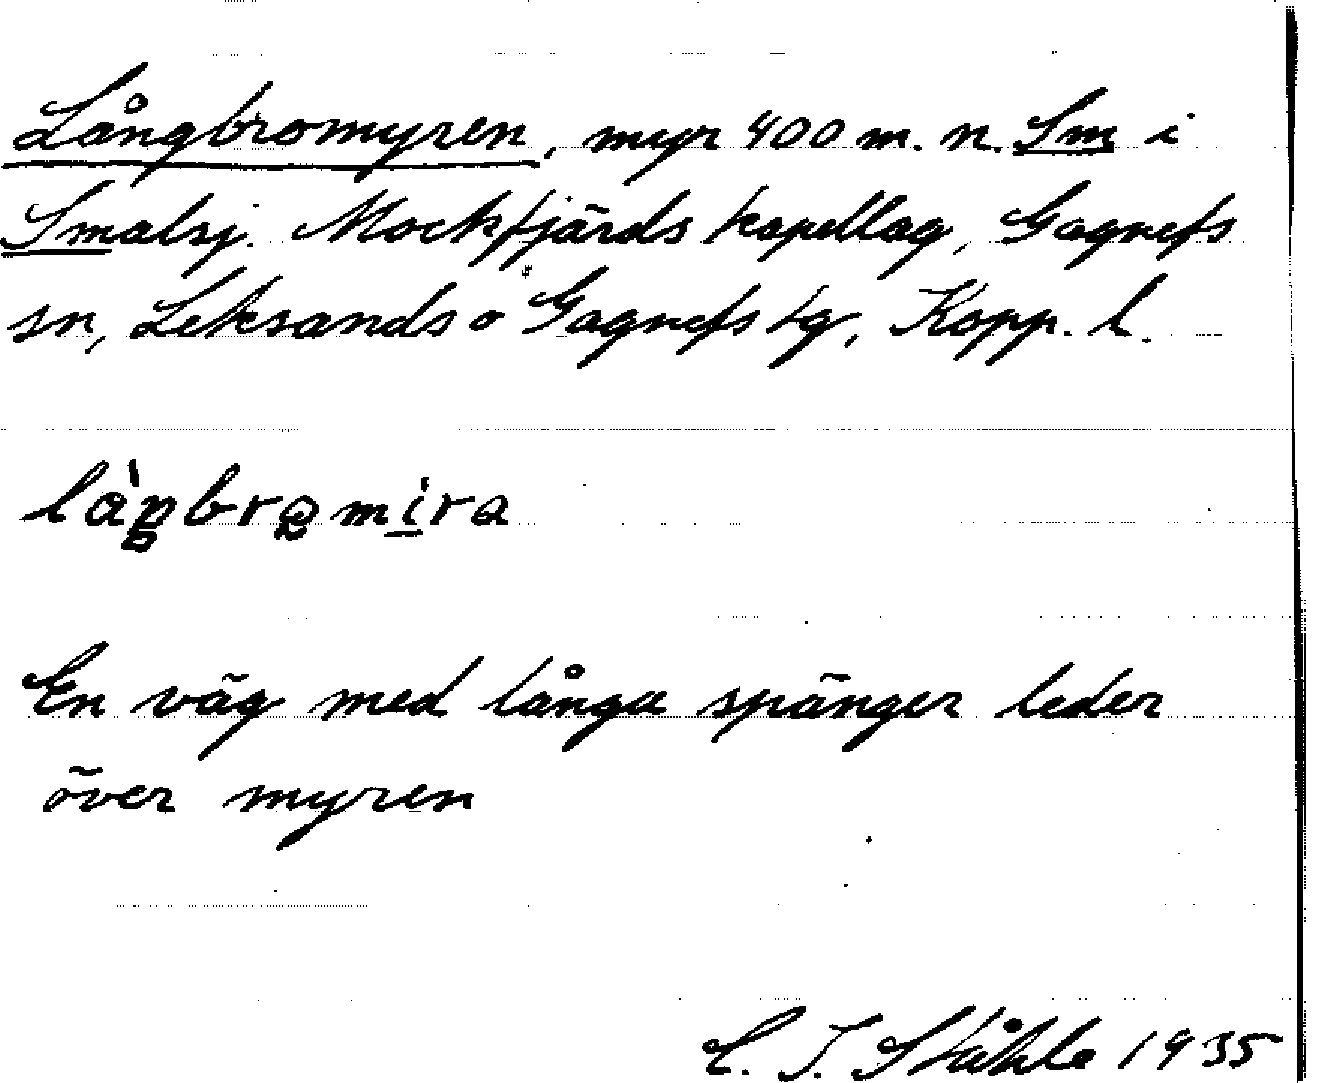 Långbromyren, myr 400 m. n. Sm i
Smalsj. Mockfjärds kapellag, Gagnefs
sn, Leksands o Gagnefs tg, Kopp. l.
làŋbromira
En väg med långa spänger leder
över myren
C. I. Ståhle 1935